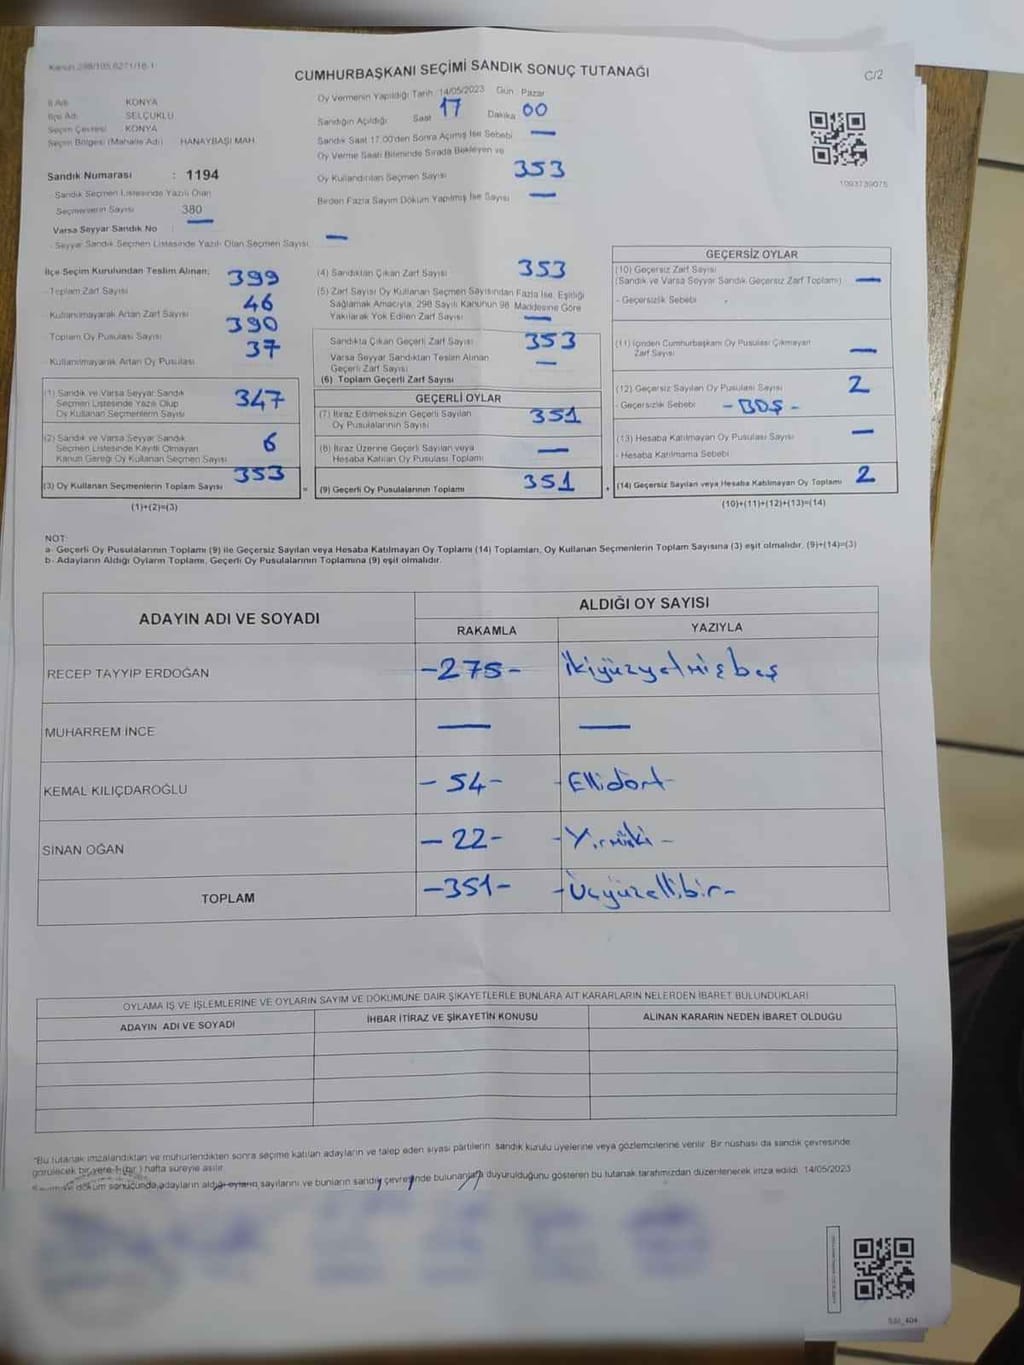 Kanun 298/105,6271/16-1
CUMHURBAŞKANI SEÇİMİ SANDIK SONUÇ TUTANAĞI
C/2
İl Adı KONYA
İlçe Adı SELÇUKLU
Seçim Çevresi KONYA
Seçim Bölgesi (Mahalle Adı) HANAYBAŞI MAH.
Sandık Numarası : 1194
- Sandık Seçmen Listesinde Yazılı Olan
Seçmenlerin Sayısı 380
Varsa Seyyar Sandık No : —
- Seyyar Sandık Seçmen Listesinde Yazılı Olan Seçmen Sayısı —
Oy Vermenin Yapıldığı Tarih :14/05/2023 Gün Pazar
Sandığın Açıldığı Saat 17 Dakika 00
Sandık Saat 17:00'den Sonra Açılmış İse Sebebi —
Oy Verme Saati Bitiminde Sırada Bekleyen ve
Oy Kullandırılan Seçmen Sayısı 353
Birden Fazla Sayım Döküm Yapılmış İse Sayısı —
1093739075
İlçe Seçim Kurulundan Teslim Alınan;
- Toplam Zarf Sayısı 399
- Kullanılmayarak Artan Zarf Sayısı 46
- Toplam Oy Pusulası Sayısı 390
- Kullanılmayarak Artan Oy Pusulası 37
(1) Sandık ve Varsa Seyyar Sandık
Seçmen Listesinde Yazılı Olup
Oy Kullanan Seçmenlerin Sayısı 347
(2) Sandık ve Varsa Seyyar Sandık
Seçmen Listesinde Kayıtlı Olmayan
Kanun Gereği Oy Kullanan Seçmen Sayısı 6
(3) Oy Kullanan Seçmenlerin Toplam Sayısı 353
(1)+(2)=(3)
(4) Sandıktan Çıkan Zarf Sayısı 353
(5) Zarf Sayısı Oy Kullanan Seçmen Sayısından Fazla İse, Eşitliği
Sağlamak Amacıyla, 298 Sayılı Kanunun 98. Maddesine Göre
Yakılarak Yok Edilen Zarf Sayısı —
Sandıkta Çıkan Geçerli Zarf Sayısı 353
Varsa Seyyar Sandıktan Teslim Alınan
Geçerli Zarf Sayısı —
(6) Toplam Geçerli Zarf Sayısı
GEÇERLİ OYLAR
(7) İtiraz Edilmeksizin Geçerli Sayılan
Oy Pusulalarının Sayısı 351
(8) İtiraz Üzerine Geçerli Sayılan veya
Hesaba Katılan Oy Pusulası Toplamı —
= (9) Geçerli Oy Pusulalarının Toplamı 351
GEÇERSİZ OYLAR
(10) Geçersiz Zarf Sayısı
(Sandık ve Varsa Seyyar Sandık Geçersiz Zarf Toplamı) —
- Geçersizlik Sebebi
(11) İçinden Cumhurbaşkanı Oy Pusulası Çıkmayan
Zarf Sayısı —
(12) Geçersiz Sayılan Oy Pusulası Sayısı 2
- Geçersizlik Sebebi -BOŞ-
(13) Hesaba Katılmayan Oy Pusulası Sayısı —
- Hesaba Katılmama Sebebi
+ (14) Geçersiz Sayılan veya Hesaba Katılmayan Oy Toplamı 2
(10)+(11)+(12)+(13)=(14)
NOT:
a- Geçerli Oy Pusulalarının Toplamı (9) ile Geçersiz Sayılan veya Hesaba Katılmayan Oy Toplamı (14) Toplamları, Oy Kullanan Seçmenlerin Toplam Sayısına (3) eşit olmalıdır. (9)+(14)=(3)
b- Adayların Aldığı Oyların Toplamı, Geçerli Oy Pusulalarının Toplamına (9) eşit olmalıdır.
ADAYIN ADI VE SOYADI ALDIĞI OY SAYISI
RAKAMLA YAZIYLA
RECEP TAYYIP ERDOĞAN -275- İkiyüzyetmişbeş
MUHARREM İNCE — —
KEMAL KILIÇDAROĞLU -54- -Ellidört-
SİNAN OĞAN -22- -Yirmiiki-
TOPLAM -351- -Üçyüzellibir-
OYLAMA İŞ VE İŞLEMLERİNE VE OYLARIN SAYIM VE DÖKÜMÜNE DAİR ŞİKAYETLERLE BUNLARA AİT KARARLARIN NELERDEN İBARET BULUNDUKLARI
ADAYIN ADI VE SOYADI İHBAR İTİRAZ VE ŞİKAYETİN KONUSU ALINAN KARARIN NEDEN İBARET OLDUĞU
*Bu tutanak imzalandıktan ve mühürlendikten sonra seçime katılan adayların ve talep eden siyasi partilerin sandık kurulu üyelerine veya gözlemcilerine verilir. Bir nüshası da sandık çevresinde
görülecek bir yere 1 (bir) hafta süreyle asılır.
döküm sonucunda adayların aldığı oyların sayılarını ve bunların sandık çevresinde bulunanlara duyurulduğunu gösteren bu tutanak tarafımızdan düzenlenerek imza edildi. 14/05/2023